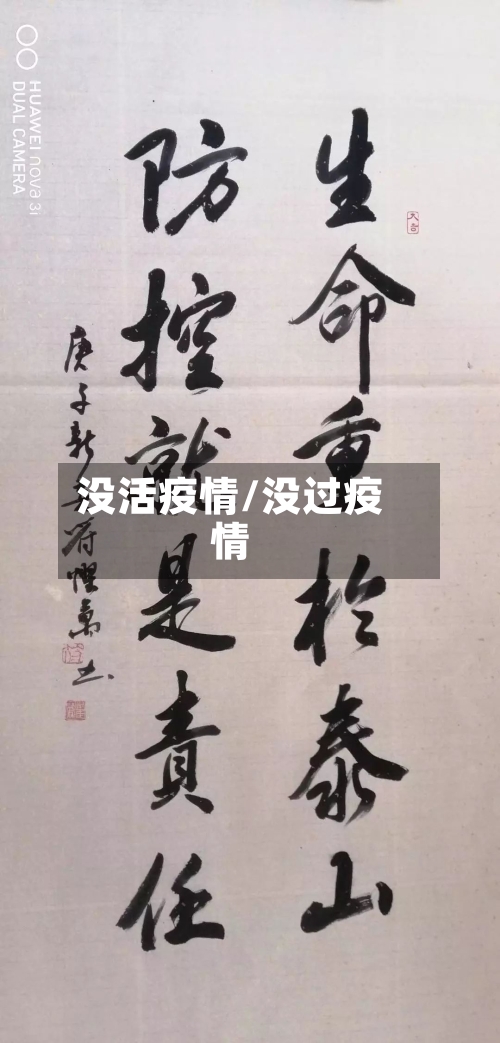 HUAWEI nova 3i
DUAL CAMERA
生命重於泰山
防控就是責任
庚子新
書
没活疫情/没过疫
情